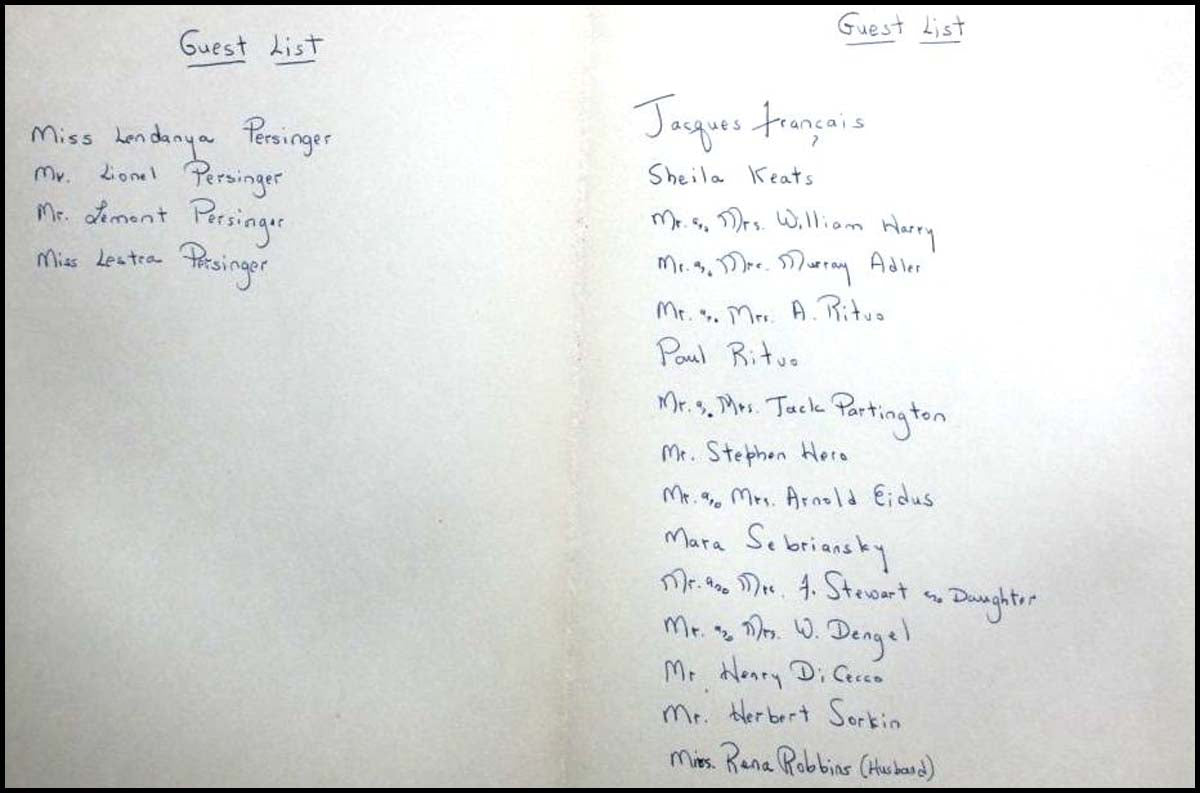 Guest List
Miss Lendanya Persinger
Mr. Lionel Persinger
Mr. Lemont Persinger
Miss Lestra Persinger
Guest List
Jacques Français
Sheila Keats
Mr. & Mrs. William Harry
Mr. & Mrs. Murray Adler
Mr. & Mrs. A. Ritvo
Paul Ritvo
Mr. & Mrs. Jack Partington
Mr. Stephen Hero
Mr. & Mrs. Arnold Eidus
Mara Sebriansky
Mr. & Mrs. J. Stewart & Daughter
Mr. & Mrs. W. Dengel
Mr. Henry Di Cecco
Mr. Herbert Sorkin
Mrs. Rena Robbins (Husband)